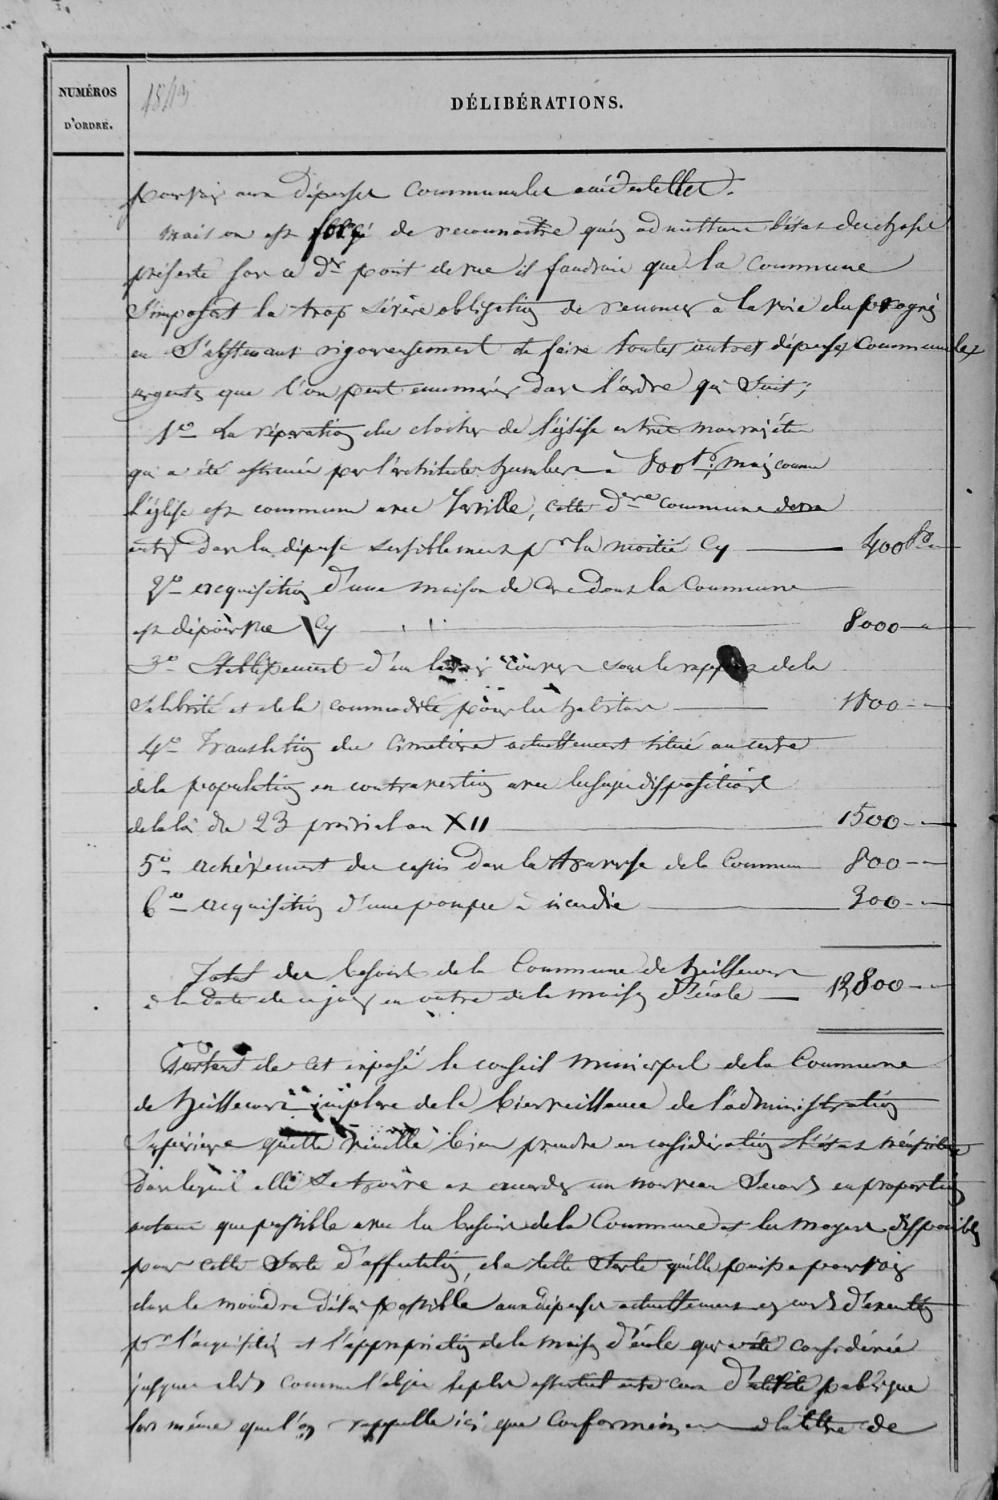 NUMÉROS
D'ORDRE.
DÉLIBÉRATIONS.
pourvoir aux dépenses communales accidentelles.
Mais on est forcé de reconnoitre qu'en admettant l'état de chose
présenté sur ce dr point de vue il faudrait que la commune
s'imposât la trop sévère obligation de renoncer à la voie du progrès
en s'abstenant rigoureusement de faire toutes autres dépenses communales
urgentes que l'on peut énumérer dans l'ordre qui suit;
1o La réparation du clocher de l'église
qui a été estimée par l'architecte Humbert à 800 f; mais comme
l'église est commune avec Terville, cette dre commune devra
entrer dans la dépense sensiblement pr la moitié Cy 400 f
2o acquisition d'une maison de Cure dont la Commune
est dépourvue Cy 8000
3o Etablissement d'un lavoir couvert sous le rapport de la
salubrité et de la commodité pour les habitans 1800
4o Translation du Cimetière actuellement situé au centre
de la population en contravention avec les dispositions
de la loi du 23 prairial an XII 1500
5o achèvement des cassis dans la traverse de la Commune 800
6o acquisition d'une pompe à incendie 300
Total des besoins de la Commune de
à la date de ce jour en outre de la maison d'école 12800
Partant de cet exposé le conseil municipal de la Commune
de implore de la bienveillance de l'administration
supérieure qu'elle veuille bien prendre en considération l'état
dans lequel elle se trouve et accorder un nouveau secours en proportion
autant que possible avec les besoins de la Commune et les moyens disponibles
pour cette sorte d'affectation, de telle sorte qu'elle puisse pourvoir
dans le moindre délai possible aux dépenses actuellement en cours d'exécution
pr l'acquisition et l'appropriation de la maison d'école qui a été considérée
jusques alors comme l'objet le plus essentiel d'utilité publique
lors même que l'on rappelle ici que conformément à la lettre de